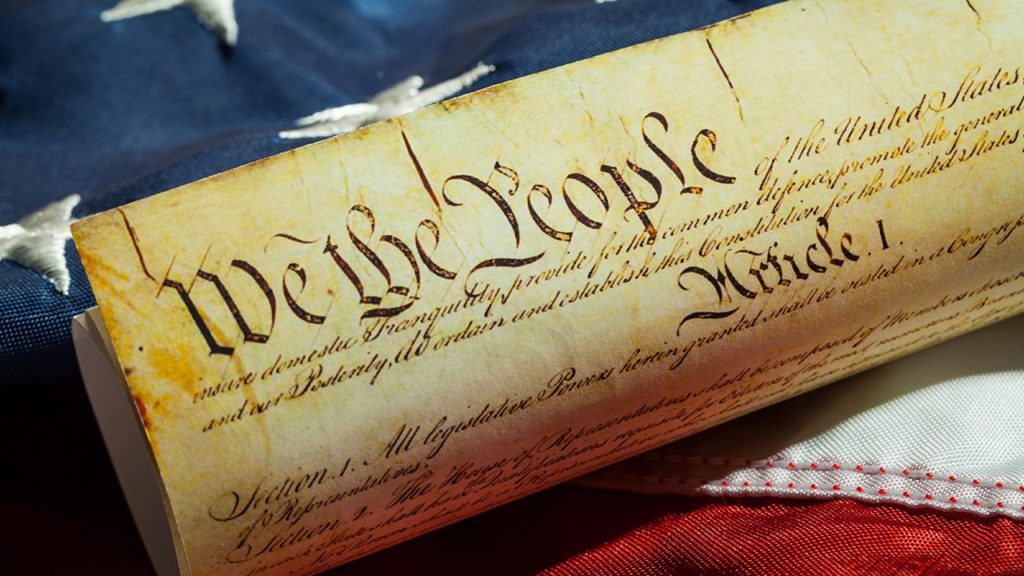 We the People of the United States
insure domestic Tranquility, provide for the common defence, promote the general
and our Posterity, do ordain and establish this Constitution for the United States
Article. I.
Section. 1. All legislative Powers herein granted shall be vested in a Congress
of Representatives.
Section. 2. The House of Representatives shall be composed of Members chosen